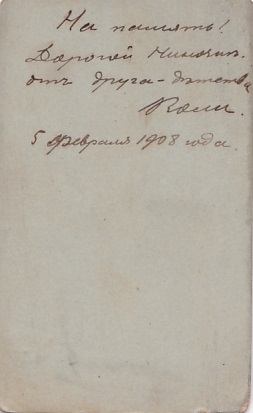 На память!
Дорогой Ниночке
отъ друга-дѣтства
Вали.
5 Февраля 1908 года.